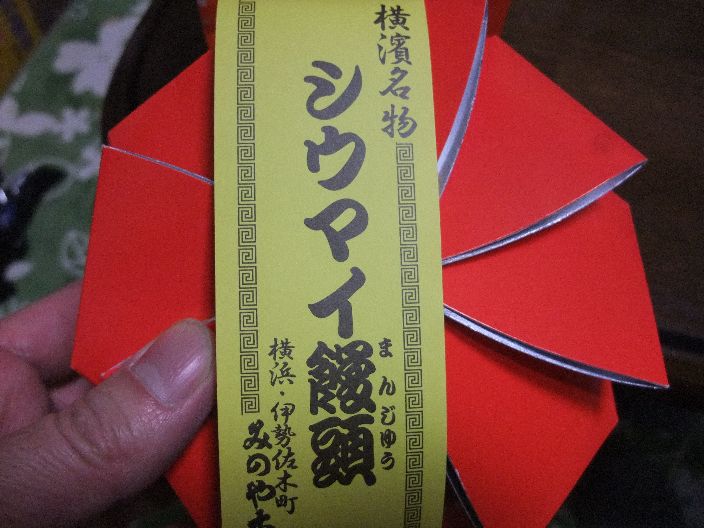 横濱名物
シウマイ饅頭
まんじゅう
横浜・伊勢佐木町
みのや本